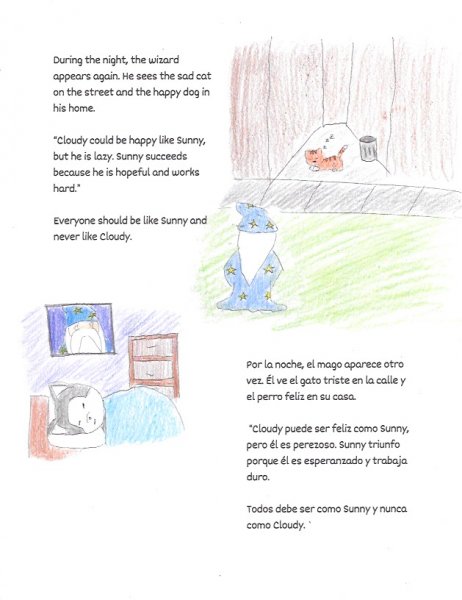 During the night, the wizard
appears again. He sees the sad cat
on the street and the happy dog in
his home.
"Cloudy could be happy like Sunny,
but he is lazy. Sunny succeeds
because he is hopeful and works
hard."
Everyone should be like Sunny and
never like Cloudy.
z
z
z
Por la noche, el mago aparece otro
vez. Él ve el gato triste en la calle y
el perro feliz en su casa.
"Cloudy puede ser feliz como Sunny,
pero él es perezoso. Sunny triunfo
porque él es esperanzado y trabaja
duro.
Todos debe ser como Sunny y nunca
como Cloudy. `